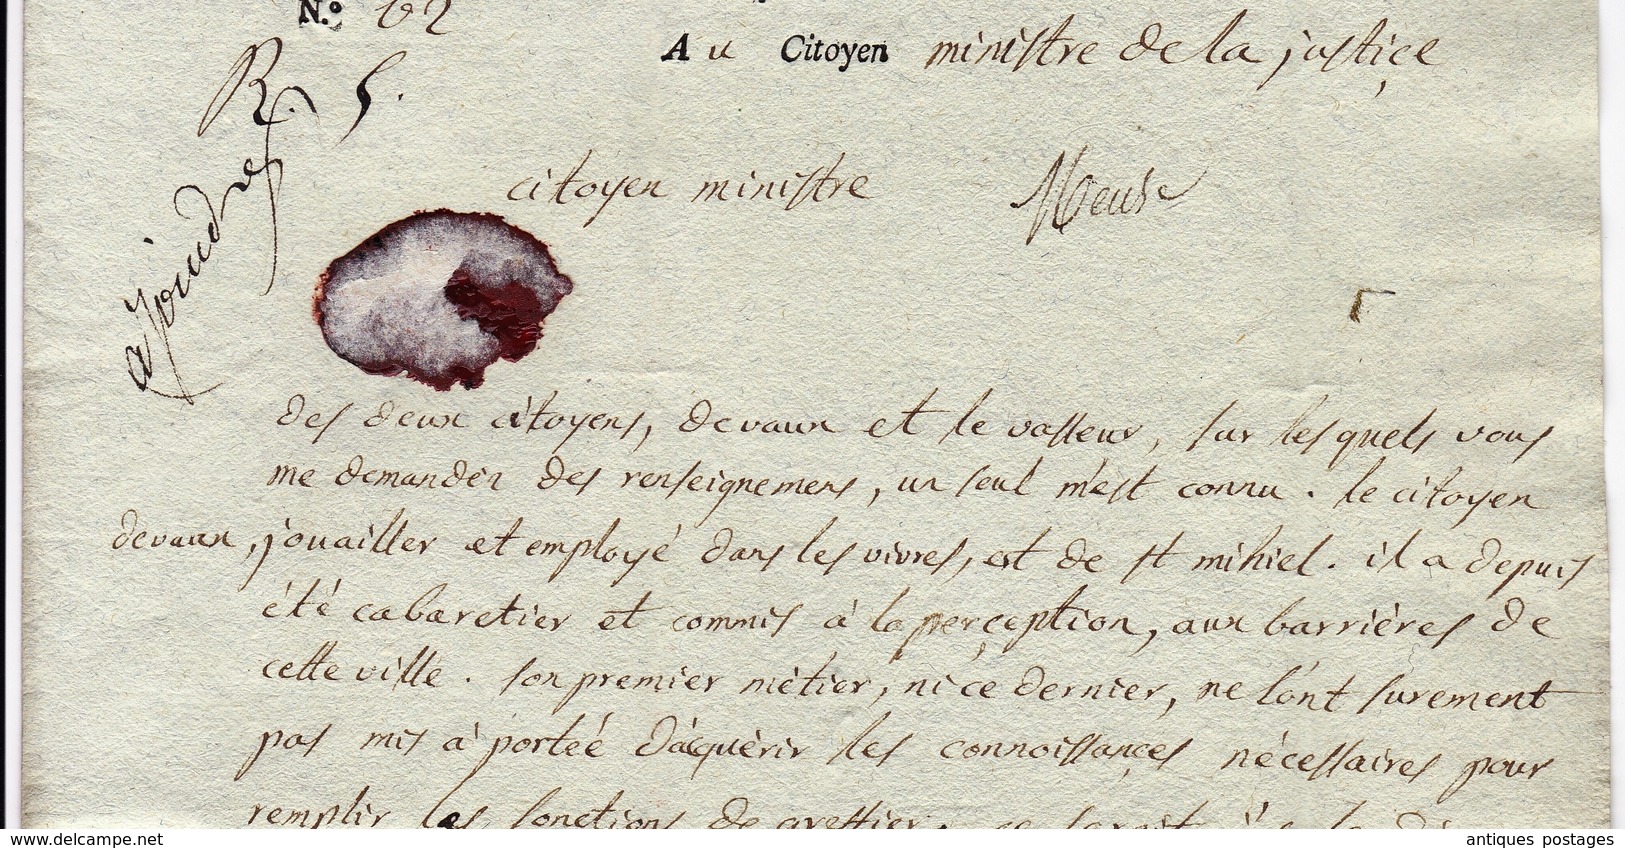 N.º 62
Au Citoyen ministre de la justice
R. S.
ajoudres
citoyen ministre Meuse
des deux citoyens, devaux et le vasseur, sur les quels vous
me demandéz des renseignemens, un seul m'est connu. le citoyen
devaux, jouailler et employé dans les vivres, est de st mihiel. il a depuis
été cabaretier et commis à la perception, aux barrières de
cette ville. son premier métier, ni ce dernier, ne l'ont surement
pas mis à portée d'acquérir les connoissances nécessaires pour
remplir les fonctions de greffier.
delcampe.net
antiques postages